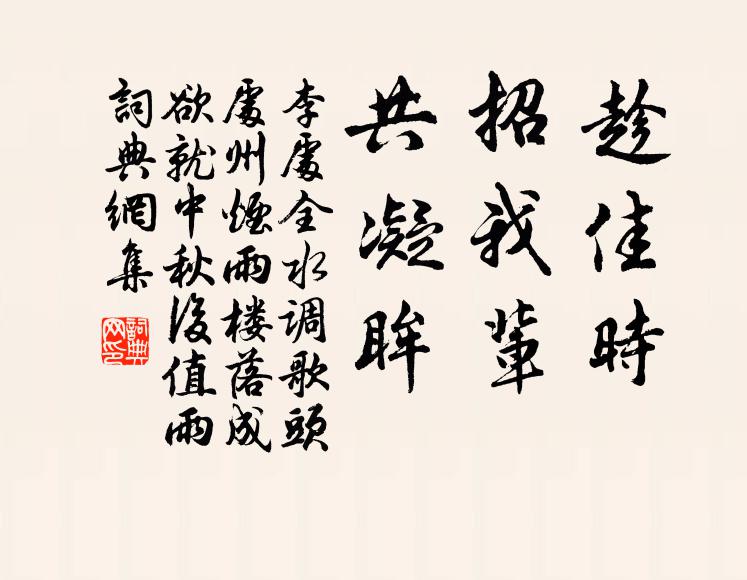 趁佳時
招我輩
共凝眸
李處全水调歌頭
處州煙雨楼落成
欲就中秋後值雨
詞典網集
詞典
网印